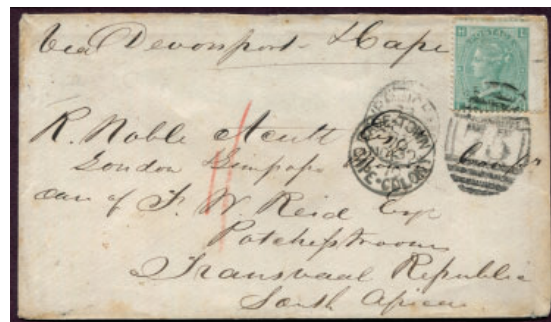 Via Devonport - & Cape
R. Noble Acutt
London Limpopo
care of F. W. Reid Esqr
Potchefstroom
Transvaal Republic
South Africa
CAPE-TOWN
CAPE-COLONY